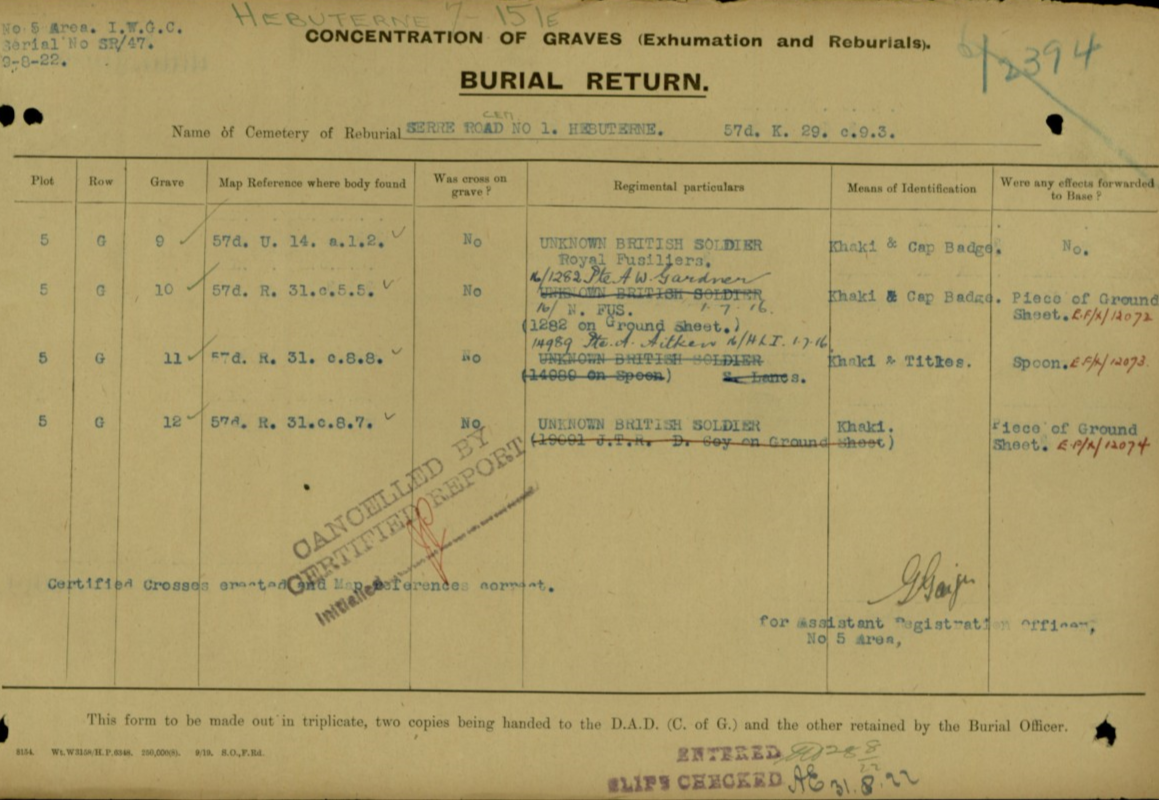 No 5 Area. I.W.G.C.
Serial No SR/47.
9-8-22.
HEBUTERNE 7-15/E
6/2394
CONCENTRATION OF GRAVES (Exhumation and Reburials).
BURIAL RETURN.
CEM
Name of Cemetery of Reburial SERRE ROAD NO 1. HEBUTERNE. 57d. K. 29. c.9.3.
Plot Row Grave Map Reference where body found Was cross on grave? Regimental particulars Means of Identification Were any effects forwarded to Base?
5 G 9 57d. U. 14. a.1.2. No UNKNOWN BRITISH SOLDIER Khaki & Cap Badge. No.
Royal Fusiliers.
16/1282 Pte A W Gardner
5 G 10 57d. R. 31.c.5.5. No UNKNOWN BRITISH SOLDIER Khaki & Cap Badge. Piece of Ground
16/ N. FUS. 1.7.16. Sheet. E.F/R/12072
(1282 on Ground Sheet.)
14989 Pte. A. Aitken 16/H.L.I. 1.7.16.
5 G 11 57d. R. 31. c.8.8. No UNKNOWN BRITISH SOLDIER Khaki & Titles. Spoon. E.F/R/12073
(14989 on Spoon) E. Lancs.
5 G 12 57d. R. 31.c.8.7. No UNKNOWN BRITISH SOLDIER Khaki. Piece of Ground
(19001 J.T.R. D. Coy on Ground Sheet) Sheet. E.F/R/12074
CANCELLED BY
CERTIFIED REPORT
Initialled
Certified Crosses erected and Map References correct.
for Assistant Registration Officer,
No 5 Area,
This form to be made out in triplicate, two copies being handed to the D.A.D. (C. of G.) and the other retained by the Burial Officer.
8154. Wt.W3158/H.P.6348. 250,000(8). 9/19. S.O.,F.Rd.
ENTERED 28 8/22
SLIPS CHECKED AE 31.8.22